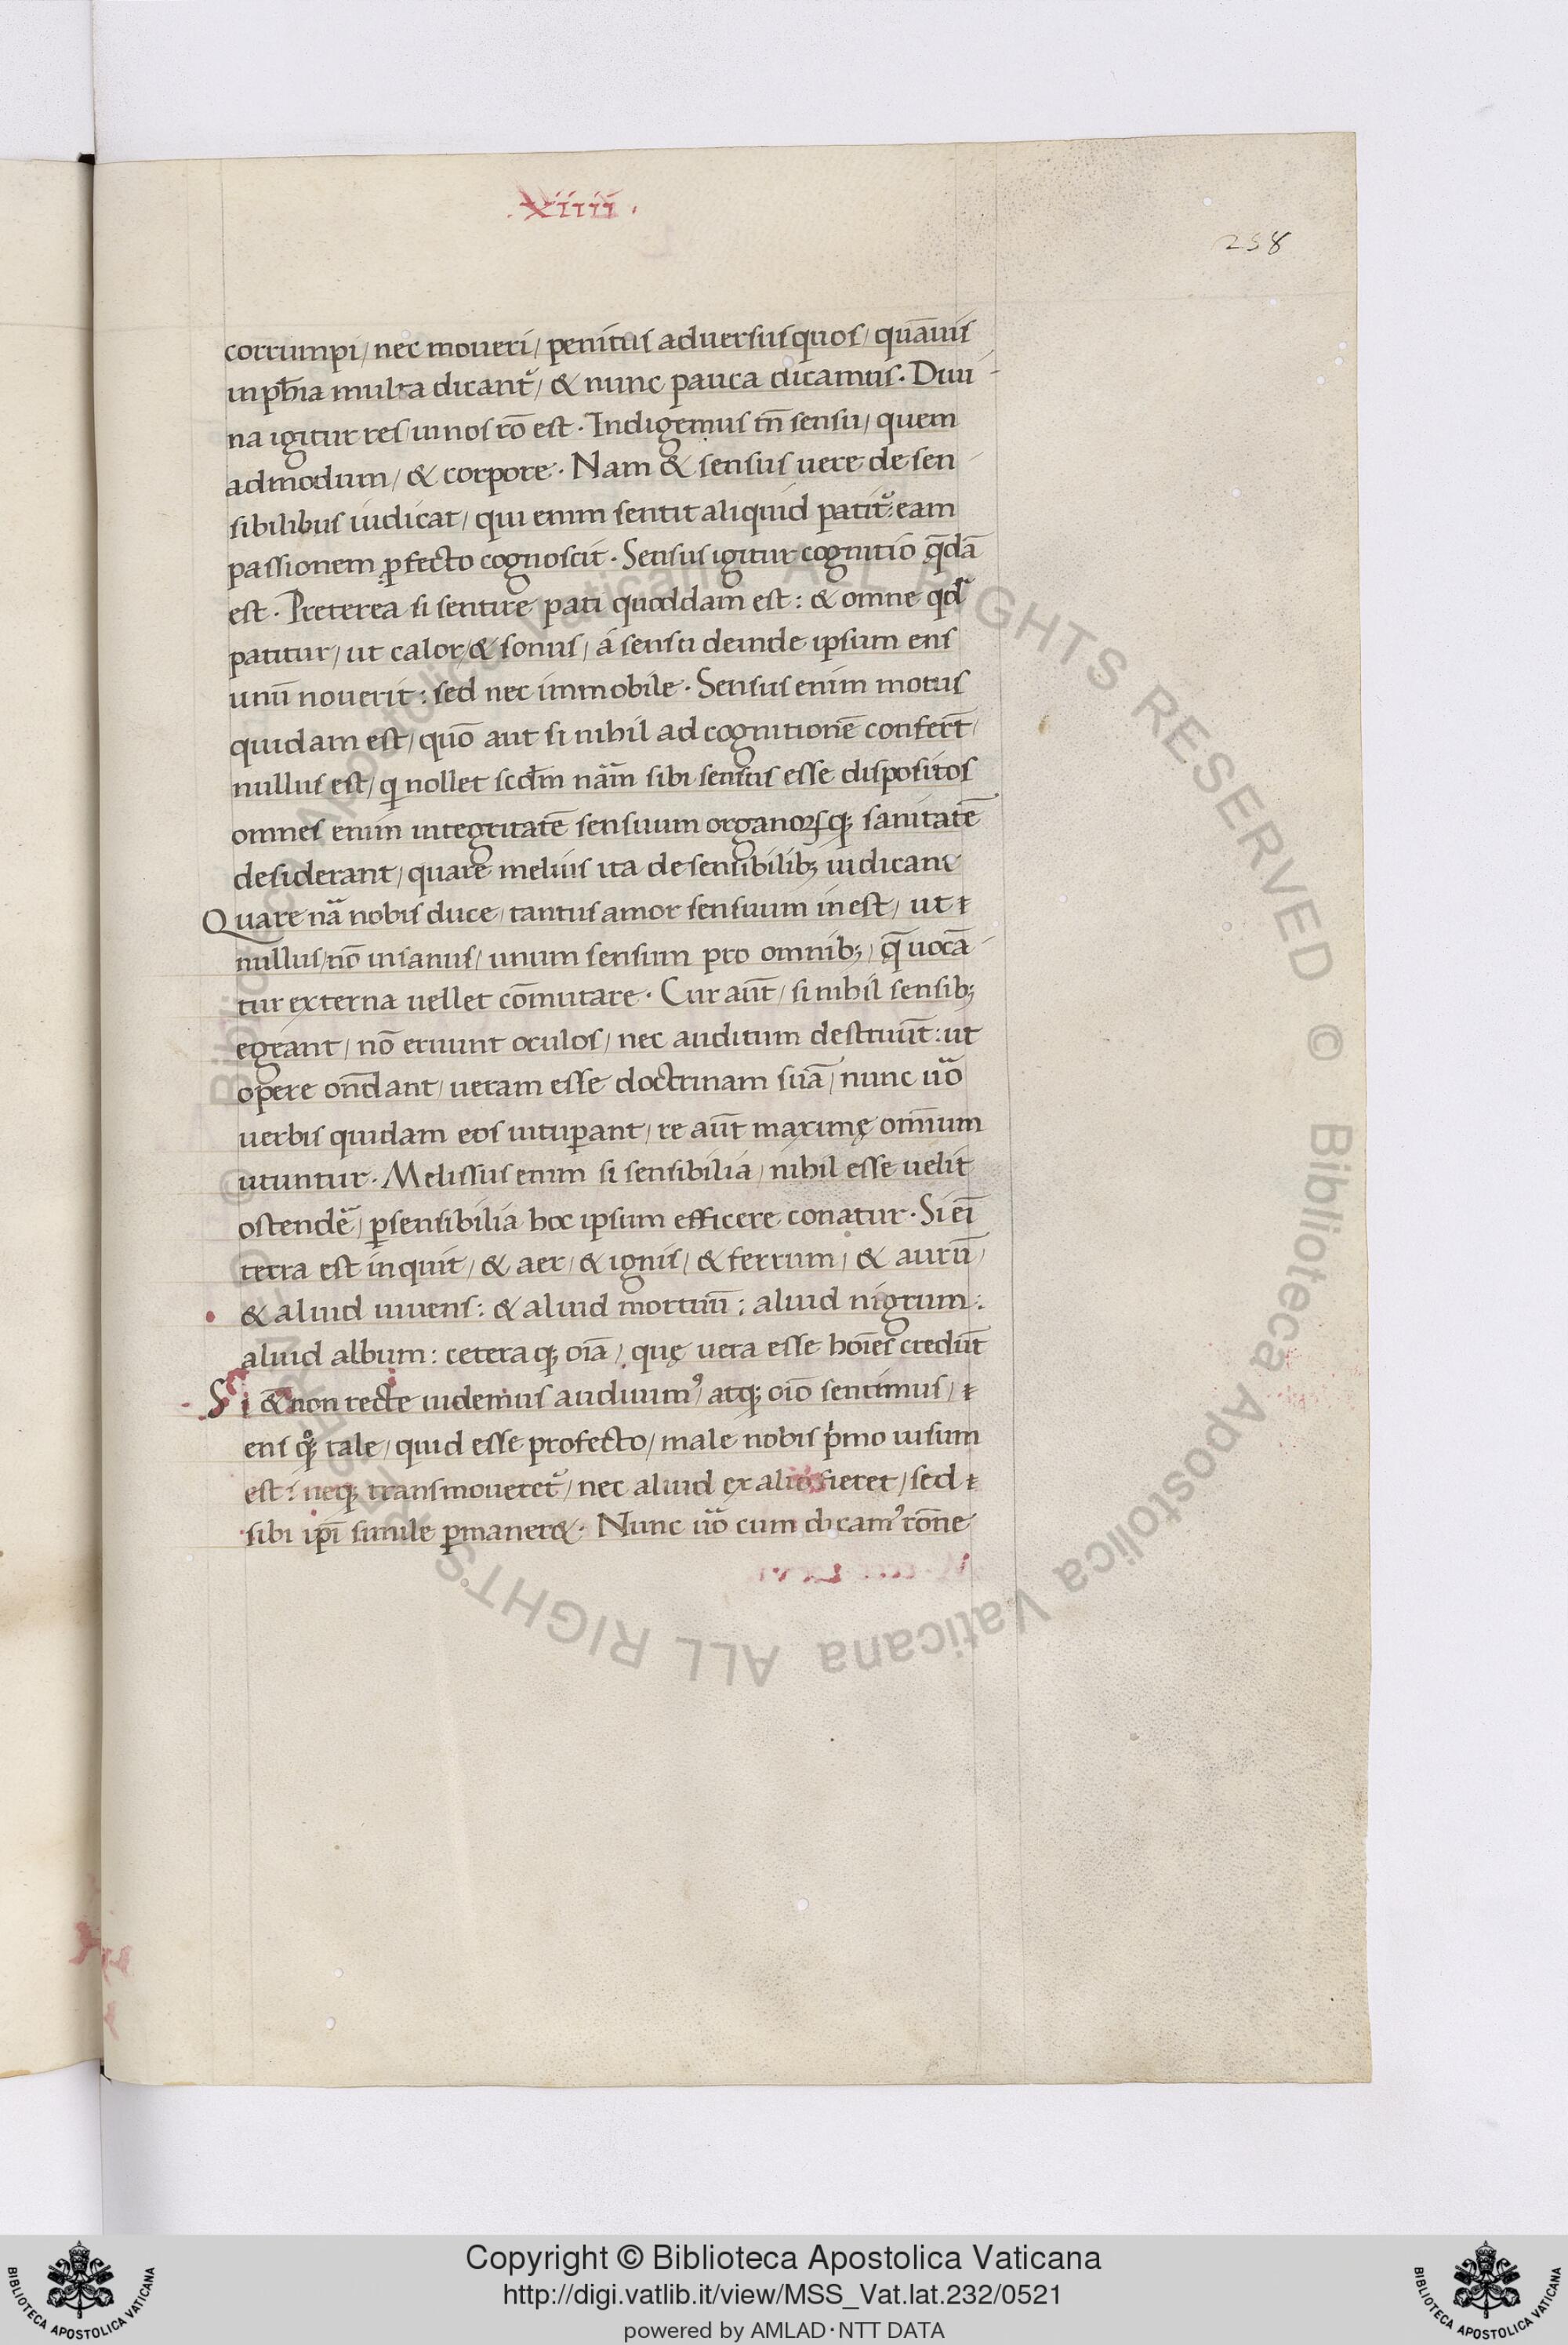 .XIIII.
258
corrumpi/ nec moueri/ penitus aduersus quos/ quāuis
in ph̄ia multa dicant᷑/ & nunc pauca dicamus. Diui
na igitur res/ in nos rō est. Indigemus tn̄ sensu/ quem
admodum/ & corpore. Nam & sensus uere de sen
sibilibus iudicat/ qui enim sentit aliquid patit᷑: eam
passionem ꝓfecto cognoscit. Sensus igitur cognitio q̄dā
est. Preterea si sentire pati quoddam est: & omne qd̄
patitur/ ut calor/ & sonus/ á sensu deinde ipsum ens
unū nouerit: sed nec immobile. Sensus enim motus
quidam est/ quō aut si nihil ad cognitionē confert̄/
nullus est/ qi nollet scd̄m nām sibi sensus esse dispositos
omnes enim integritatē sensuum organoꝝq; sanitatē
desiderant/ quare melius ita de sensibilib; iudicant
Quare nā nobis duce/ tantus amor sensuum inest/ ut
nullus/ nō insanus/ unum sensum pro omnib;/ q̄ uocā
tur externa uellet cōmutare. Cur aūt/ si nihil sensib;
egeant/ nō eruunt oculos/ nec auditum destruūt: ut
opere ond̄ant/ ueram esse doctrinam suā/ nunc uō
uerbis quidam eos uituꝑant/ re aūt maximę omīum
utuntur. Melissus enim si sensibilia/ nihil esse uelit
ostendē/ ꝑ sensibilia hoc ipsum efficere conatur. Si eī
terra est inquit/ & aer/ & ignis/ & ferrum/ & aurū/
& aliud uiuens: & aliud mortuū: aliud nigrum:
aliud album: ceteraq; oīa/ quę uera esse hoīes credūt
Si & non recte uidemus audiuimꝰ/ atq; oīo sentimus/
ens qͦq; tale/ quid esse profecto/ male nobis pͥmo uisum
est: neq; transmoueret᷑/ nec aliud ex alio fieret/ sed
sibi ip̄i simile ꝑmaner&. Nunc uō cum dicamꝰ rōne
© Biblioteca Apostolica Vaticana ALL RIGHTS RESERVED © Biblioteca Apostolica Vaticana ALL RIGHTS RESERVED
Copyright © Biblioteca Apostolica Vaticana
http://digi.vatlib.it/view/MSS_Vat.lat.232/0521
powered by AMLAD·NTT DATA
BIBLIOTECA APOSTOLICA VATICANA
BIBLIOTECA APOSTOLICA VATICANA